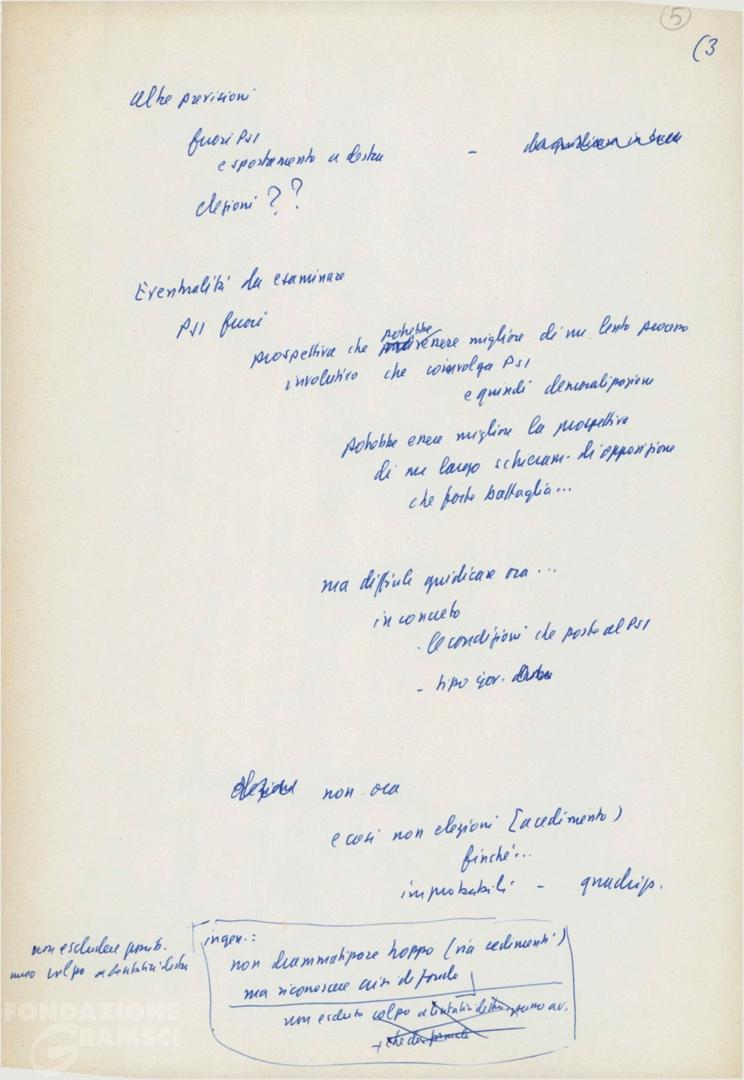 5
(3
Altre previsioni
fuori PSI
e spostamento a destra -
elezioni ??
Eventualità da esaminare
PSI fuori
potrebbe
prospettiva che essere migliore di un lento processo
involutivo che coinvolga PSI
e quindi demoralizzazione
potrebbe essere migliore la prospettiva
di un largo schieram. di opposizione
che forte battaglia...
ma difficile giudicare ora...
in concreto
- le condizioni che poste al PSI
- tipo gov.
elezioni non ora
e così non elezioni (a cedimento)
finché...
improbabili - quadrip.
non escludere possib.
nuovo colpo a tentativi destra
in gen.:
non drammatizzare troppo (via cedimenti)
ma riconoscere crisi di fondo
non escluso colpo a tentativi destra
+ che
FONDAZIONE
GRAMSCI